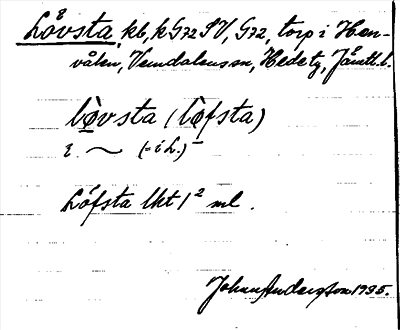 Lövsta, kb, k G72 SV, G72, torp i Hen-
vålen, Vemdalens sn, Hede tg, Jämtl. l.
lòvsta (lòfsta)
i ~ (= i L.)
Löfsta lht 1² ml.
Johan Anderston 1935.